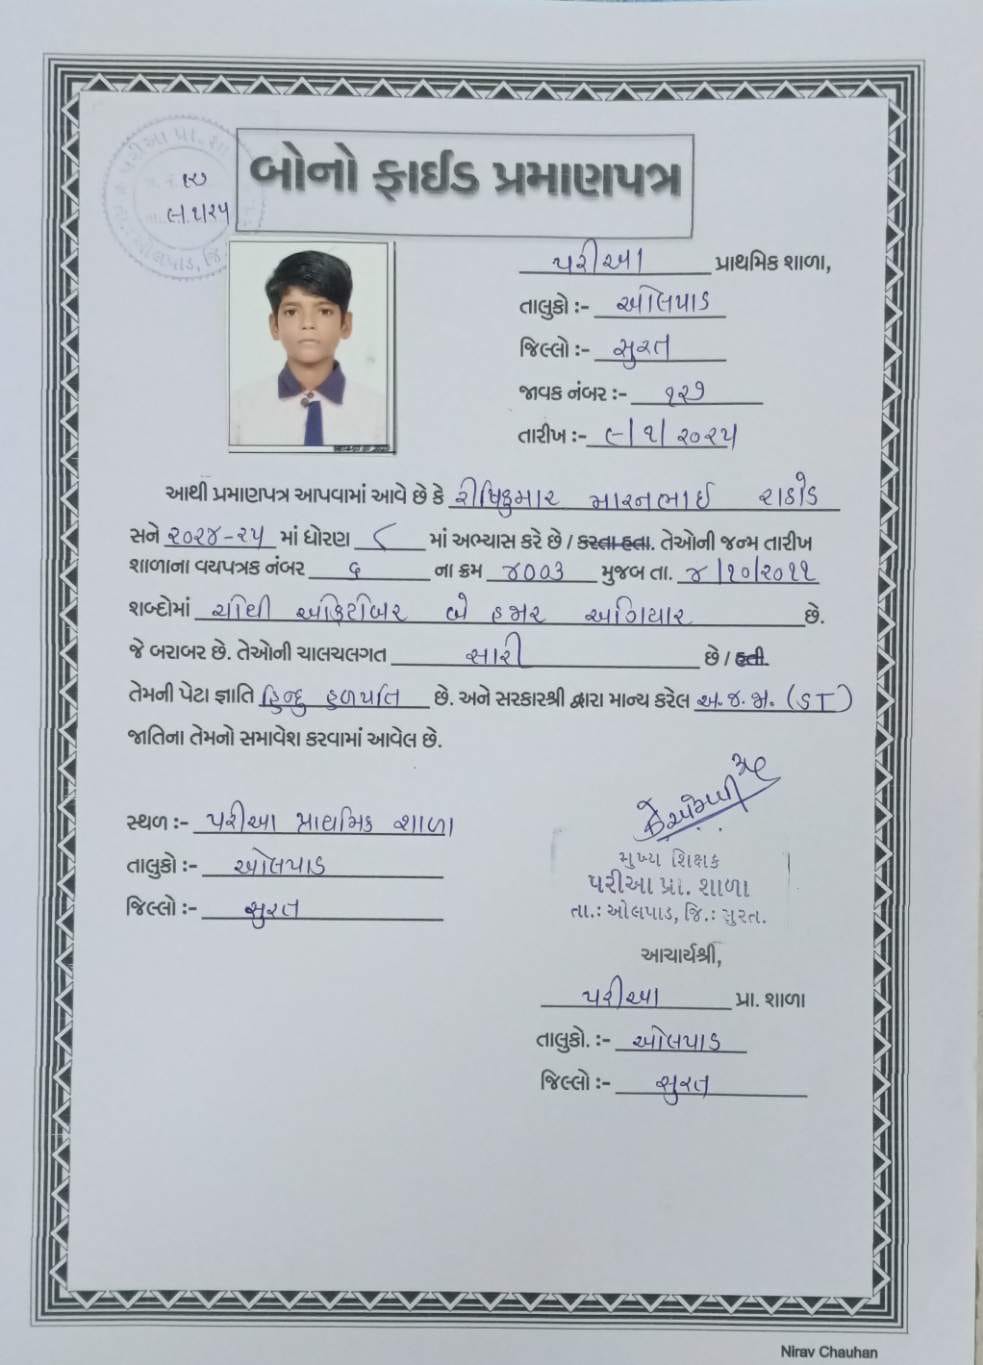 બોનો ફાઈડ પ્રમાણપત્ર
૯/૧/૨૫
પરીઆ પ્રાથમિક શાળા,
તાલુકો :- ઓલપાડ
જિલ્લો :- સુરત
જાવક નંબર :- ૧૨૭
તારીખ :- ૯/૧/૨૦૨૫
આથી પ્રમાણપત્ર આપવામાં આવે છે કે રીષિકુમાર મારનભાઈ રાઠોડ
સને ૨૦૨૪-૨૫ માં ધોરણ ૮ માં અભ્યાસ કરે છે / કરતા હતા. તેઓની જન્મ તારીખ
શાળાના વયપત્રક નંબર ૬ ના ક્રમ ૪૦૦૩ મુજબ તા. ૪/૧૦/૨૦૧૧
શબ્દોમાં ચોથી ઓક્ટોબર બે હજાર અગિયાર છે.
જે બરાબર છે. તેઓની ચાલચલગત સારી છે / હતી.
તેમની પેટા જ્ઞાતિ હિન્દુ હળપતિ છે. અને સરકારશ્રી દ્વારા માન્ય કરેલ અ.જ.જા. (ST)
જાતિના તેમનો સમાવેશ કરવામાં આવેલ છે.
સ્થળ :- પરીઆ પ્રાથમિક શાળા
તાલુકો :- ઓલપાડ
જિલ્લો :- સુરત
મુખ્ય શિક્ષક
પરીઆ પ્રા. શાળા
તા.: ઓલપાડ, જિ.: સુરત.
આચાર્યશ્રી,
પરીઆ પ્રા. શાળા
તાલુકો. :- ઓલપાડ
જિલ્લો :- સુરત
Nirav Chauhan